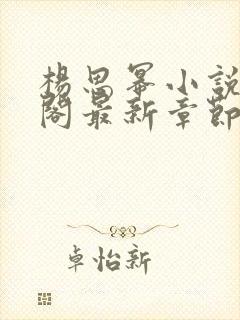 楊思冪小說
閣最新章節
卓怡新